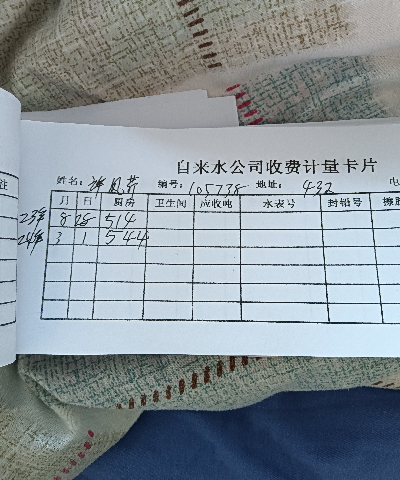 注
自来水公司收费计量卡片
姓名: 凤芹 编号: 105778 地址: 432 电
月 日 厨房 卫生间 应收吨 水表号 封铅号
23年 8 28 514
24年 3 1 544